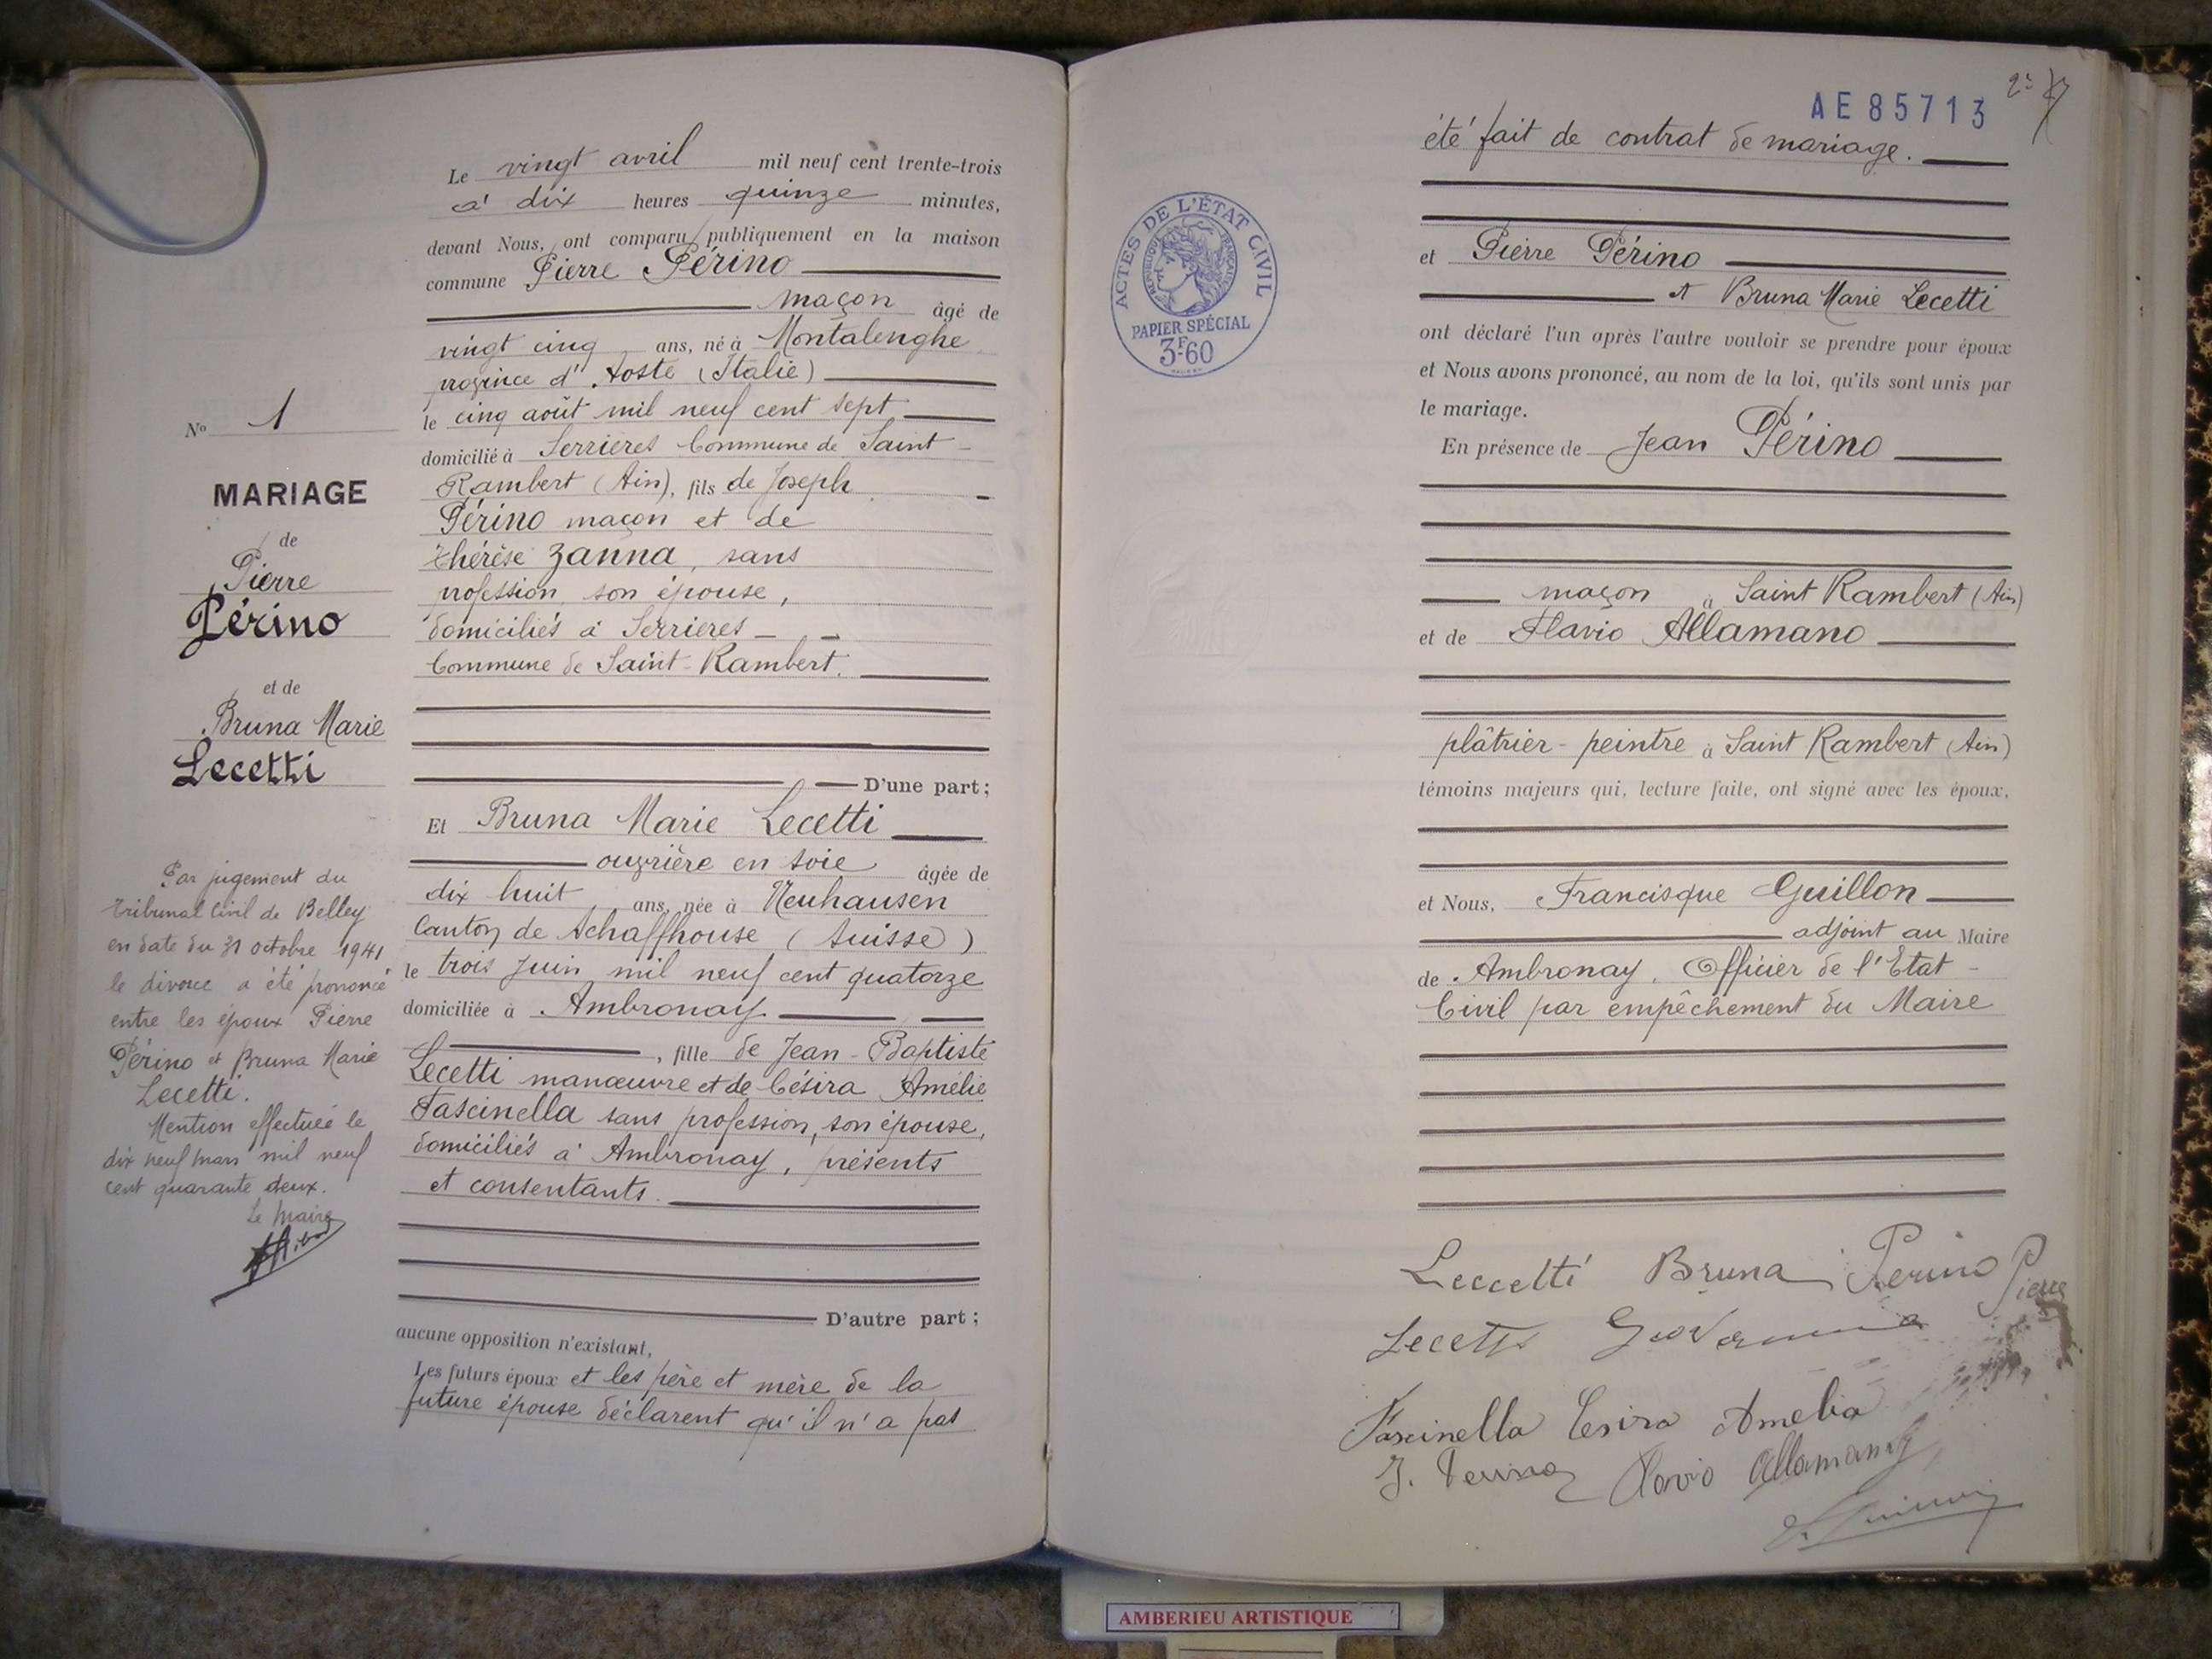 Le vingt avril mil neuf cent trente-trois
à dix heures quinze minutes,
devant Nous, ont comparu publiquement en la maison
commune Pierre Périno
maçon âgé de
vingt cinq ans, né à Montalenghe
province d'Aoste (Italie)
le cinq août mil neuf cent sept
domicilié à Serrières Commune de Saint-
Rambert (Ain), fils de Joseph
Périno maçon et de
thérèse Zanna, sans
profession, son épouse,
domiciliés à Serrières
Commune de Saint-Rambert.
D'une part;
Et Bruna Marie Lecetti
ouvrière en soie âgée de
dix huit ans, née à Neuhausen
Canton de Schaffhouse (Suisse)
le trois Juin mil neuf cent quatorze
domiciliée à Ambronay
, fille de Jean-Baptiste
Lecetti manœuvre et de Césira Amélie
Fascinella sans profession, son épouse,
domiciliés à Ambronay, présents
et consentants.
D'autre part;
aucune opposition n'existant,
Les futurs époux et les père et mère de la
future épouse déclarent qu'il n'a pas
No 1
MARIAGE
de
Pierre
Périno
et de
Bruna Marie
Lecetti
Par jugement du
tribunal Civil de Belley
en date du 31 octobre 1941
le divorce a été prononcé
entre les époux Pierre
Périno et Bruna Marie
Lecetti.
Mention effectuée le
dix neuf mars mil neuf
cent quarante deux.
Le Maire
AE85713
été fait de contrat de mariage.
et Pierre Périno
et Bruna Marie Lecetti
ont déclaré l'un après l'autre vouloir se prendre pour époux
et Nous avons prononcé, au nom de la loi, qu'ils sont unis par
le mariage.
En présence de Jean Périno
maçon à Saint Rambert (Ain)
et de Flavio Allamano
plâtrier-peintre à Saint Rambert (Ain)
témoins majeurs qui, lecture faite, ont signé avec les époux,
et Nous, Francisque Guillon
adjoint au Maire
de Ambronay, Officier de l'Etat-
Civil par empêchement du Maire
Leccetti Bruna Perino Pierre
Lecetti Giovanni
Fascinella Cesira Amelia
J. Perino Flavio Allamano
ACTES DE L'ÉTAT CIVIL
RÉPUBLIQUE FRANÇAISE
PAPIER SPÉCIAL
3F60
AMBERIEU ARTISTIQUE